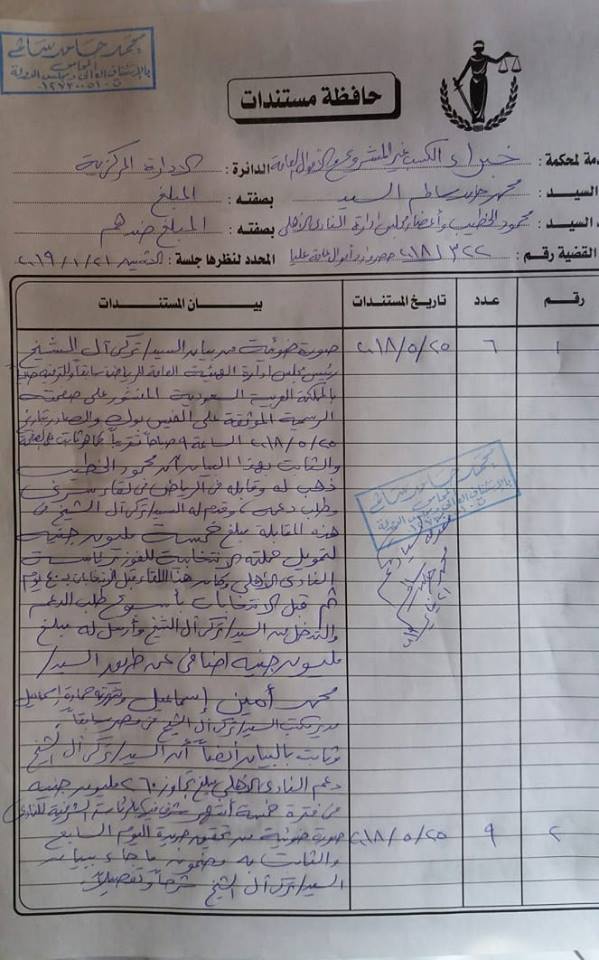 محمد حامد سالم
المحامى
بالاستئناف العالى ومجلس الدولة
حافظة مستندات
دمة لمحكمة : خبراء الكسب غير المشروع والأموال العامة الدائرة : الادارة المركزية
السيد : محمد حامد سالم السيد بصفته : المبلغ
السيد : محمود الخطيب وأعضاء مجلس ادارة النادى الأهلى بصفته : المبلغ ضدهم
القضية رقم : ٣٢٢ / ٢٠١٨ حصر وارد أموال عامة عليا المحدد لنظرها جلسة : ٢٠١٩/١/٢١
رقم عدد تاريخ المستندات بيان المستندات
١ ٦ ٢٠١٨/٥/٢٥ صورة ضوئية من بيان السيد / تركى آل الشيخ
رئيس مجلس ادارة الهيئة العامة للرياضة سابقاً والترفيه
بالمملكة العربية السعودية المنشور على صفحته
الرسمية الموثقة على الفيس بوك والصادر بتاريخ
٢٠١٨/٥/٢٥ الساعة ٩ صباحاً تقريباً
والثابت بهذا البيان أن محمود الخطيب
ذهب له وقابله فى الرياض فى لقاء سرى
وطلب دعمه وقدم له السيد / تركى آل الشيخ فى
هذه المقابلة مبلغ خمسة مليون جنيه
لتمويل حملته الانتخابية للفوز برئاسة
النادى الأهلى وكان هذا اللقاء قبل الانتخابات
ثم قبل الانتخابات بأسبوع طلب الدعم
والتدخل من السيد / تركى آل الشيخ وأرسل له مبلغ
مليون جنيه اضافى عن طريق السيد /
محمد أمين إسماعيل وشهرته حمادة إسماعيل
مدير مكتب السيد / تركى آل الشيخ فى مصر سابقاً
وثابت بالبيان أيضاً أن السيد / تركى آل الشيخ
دعم النادى الأهلى بمبلغ تجاوز ٢٦٠ مليون جنيه
فى فترة خمسة أشهر الرئاسة الشرفية للنادى
٢ ٩ ٢٠١٨/٥/٢٥ صورة ضوئية من جريدة اليوم السابع
والثابت به مضمون ما جاء ببيان
السيد / تركى آل الشيخ شرحاً وتفصيلاً
محمد حامد سالم
المحامى
بالاستئناف العالى ومجلس الدولة